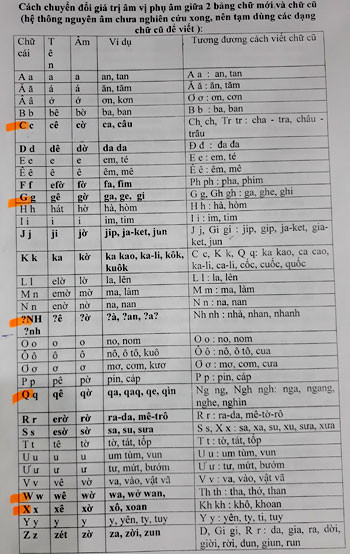 Cách chuyển đổi giá trị âm vị phụ âm giữa 2 bảng chữ mới và chữ cũ
(hệ thông nguyên âm chưa nghiên cứu xong, nên tạm dùng các dạng
chữ cũ để viết ):
Chữ cái Tên Âm Ví dụ Tương đương cách viết chữ cũ
A a a a an, tan A a : an, tan
Ă ă á á ăn, tăm Ă ă : ăn, tăm
Â â ớ ớ ơn, kơn Ơ ơ : ơn, cơn
B b bê bờ ba, ban B b : ba, ban
C c cê cờ ca, câu Ch, ch, Tr tr : cha - tra, châu -
trâu
D d dê dờ da da Đ đ : đa đa
E e e e em, té E e : em, té
Ê ê ê ê êm, mê Ê ê : êm, mê
F f efờ fờ fa, fim Ph ph : pha, phim
G g gê gờ ga, ge, gi G g, Gh gh : ga, ghe, ghi
H h hát hờ hà, hòm H h : hà, hòm
I i i i im, tim I i : im, tim
J j ji jờ jip, ja-ket, jun J j, Gi gi : jip, gip, ja-ket, gia-
ket, jun
K k ka kờ ka kao, ka-li, kôk,
kuôk
C c, K k, Q q: ka kao, ca cao,
ka-li, ca-li, cốc, cuốc, quốc
L l elờ lờ la, lên L l : la, lên
M m emờ mờ ma, làm M m : ma, làm
N n enờ nờ na, nan N n : na, nan
?NH
?nh
?ê ?ờ ?à, ?an, ?a? Nh nh : nhà, nhan, nhanh
O o o o no, nom O o : no, nom
Ô ô ô ô nô, ô tô, kuô Ô ô : nô, ô tô, cua
Ơ ơ ơ ơ mơ, cơm, kươ Ơ ơ : mơ, cơm, cưa
P p pê pờ pin, cáp P p : pin, cáp
Q q qê qờ qa, qaq, qe, qin Ng ng, Ngh ngh: nga, ngang,
nghe, nghin
R r erờ rờ ra-da, mê-trô R r : ra-da, mê-tờ-rô
S s esờ sờ sa, su, sưa S s, X x : sa, xa, su, xu, sưa, xưa
T t tê tờ tờ, tát, tốp T t : tờ, tát, tốp
U u u u um tùm, vun U u : um tùm, vun
Ư ư ư ư tư, mứt, bướm Ư ư : tư, mứt, bướm
V v vê vờ va, vào, vật vã V v : va, vào, vật vã
W w wê wờ wa, wở wan, Th th : tha, thở, than
X x xê xờ xô, xoan Kh kh : khô, khoan
Y y y y y, yên, ty, tuy Y y : yên, ty, ti, tuy
Z z zét zờ za, zời, zun D, Gi gi, R r : da, gia, ra, dời,
giời, rời, dun, giun, run